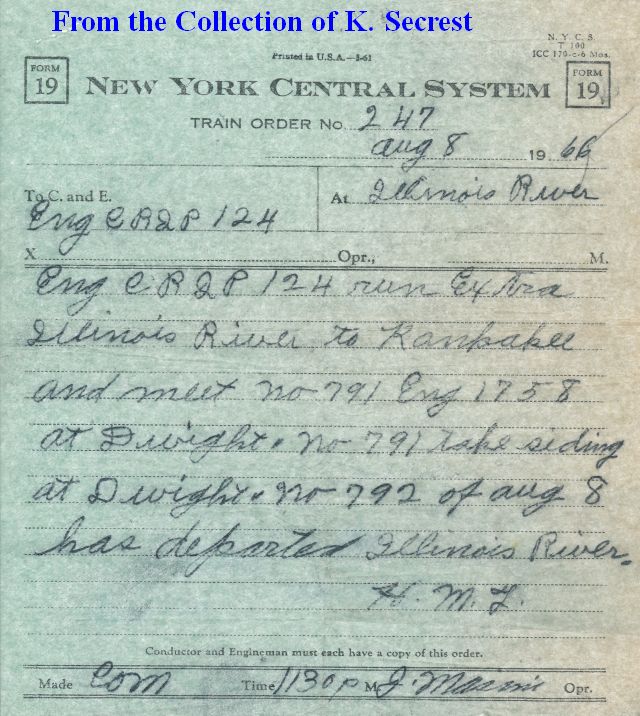 From the Collection of K. Secrest
N. Y. C. S.
T 100
ICC 170-c-6 Mos.
Printed in U.S.A.—3-61
FORM 19
NEW YORK CENTRAL SYSTEM
FORM 19
TRAIN ORDER No. 247
Aug 8 1966
To C. and E. At Illinois River
Eng CRIP 124
X Opr., M.
Eng CRIP 124 run Extra
Illinois River to Kankakee
and meet No 791 Eng 1758
at Dwight. No 791 take siding
at Dwight. No 792 of Aug 8
has departed Illinois River.
Conductor and Engineman must each have a copy of this order.
Made Com Time 1130 P M. J. Opr.